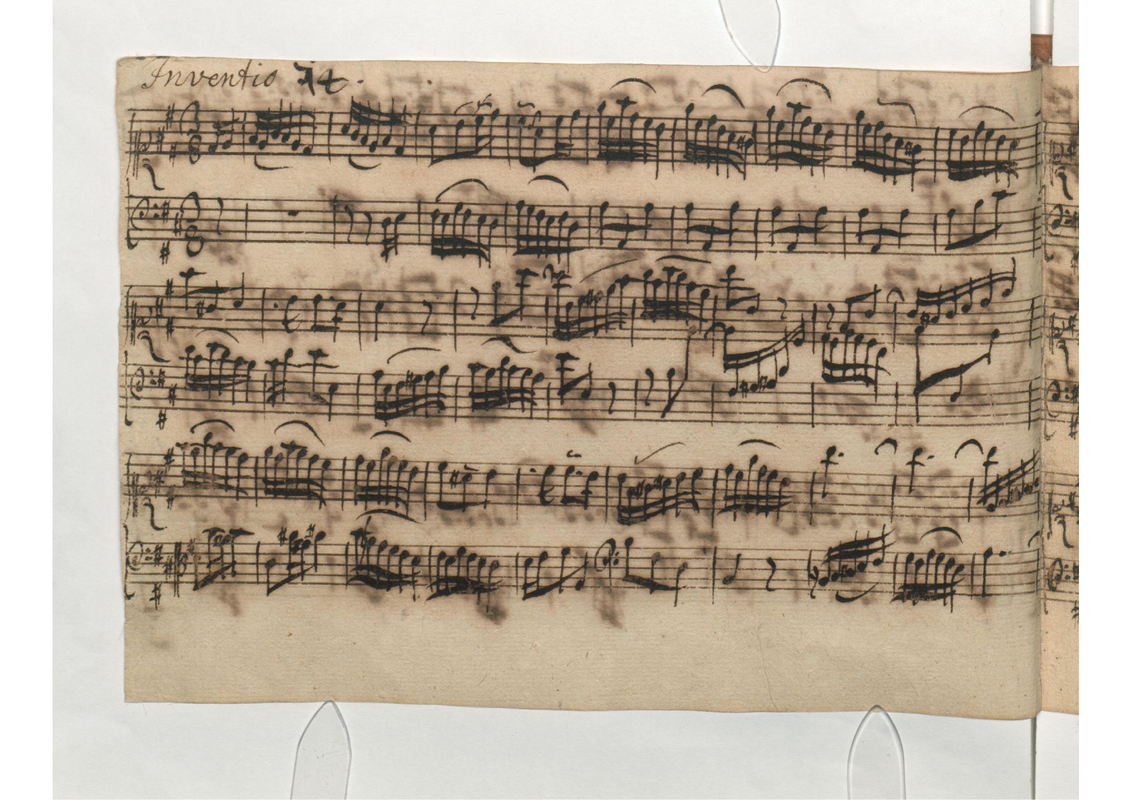 Inventio 14.